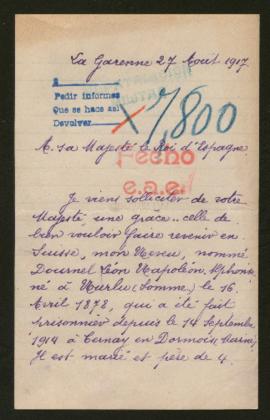 La Garenne 27 Août 1917
Pedir informes
Que se hace así
Devolver
7,800
A. sa Majesté le Roi d'Espagne
Fecho
e.a.e.
Je viens solliciter de votre
Majesté une grâce.. celle de
bien vouloir faire revenir en
Suisse, mon Neveu, nommé
Dournel Léon Napoléon, Alphonse
né à Nurlu (Somme) le 16
Avril 1878, qui a été fait
prisonnier depuis le 14 Septembre
1914 à Cernay en Dormois (Marne)
Il est marié et père de 4